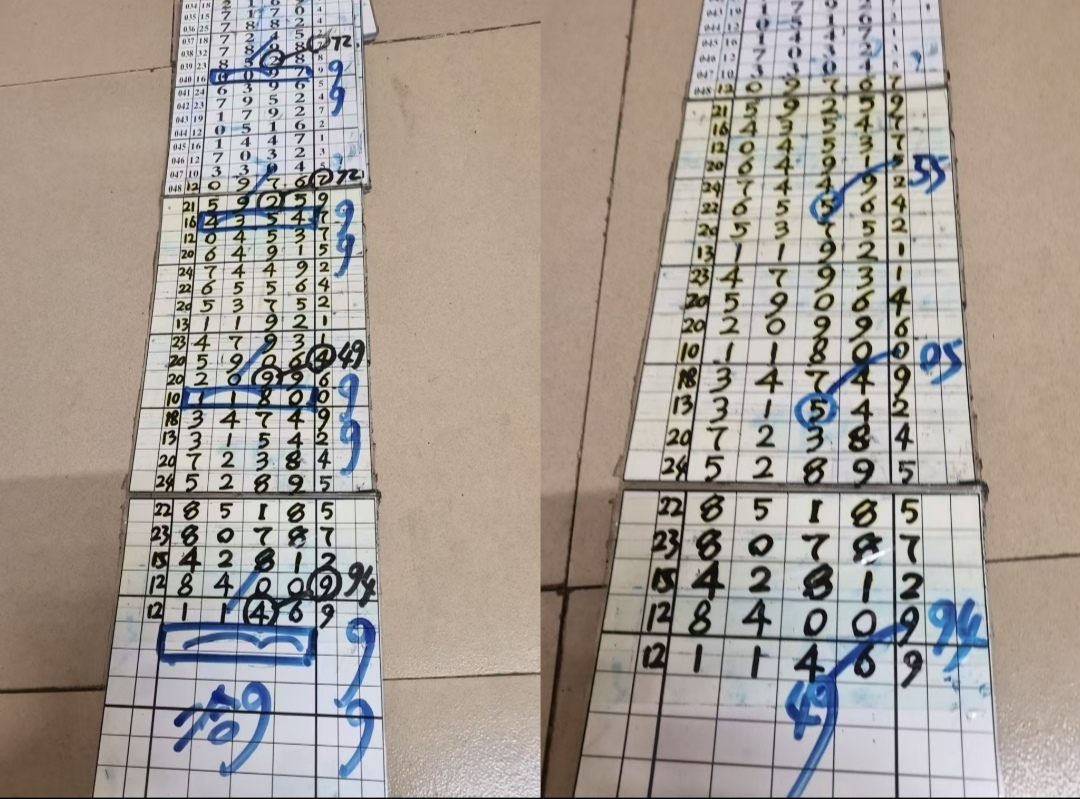 034 18
035 15 7 1 7 0
036 25 7 8 8 2
037 18 7 2 4 5
038 32 7 8 9 8 72
039 23 8 5 2 8
040 16 0 9 7 9
041 24 6 3 9 6 5
042 23 7 9 5 2 4
043 19 1 7 9 2 7
044 12 0 5 1 6 2
045 16 1 4 4 7 1
046 12 7 0 3 2 3
047 10 3 3 0 4 5
048 12 0 9 7 6 7 72
21 5 9 2 5 9
16 4 3 5 4 7
12 0 4 5 3 7
20 6 4 9 1 5
24 7 4 4 9 2
22 6 5 5 6 4
20 5 3 7 5 2
13 1 1 9 2 1
23 4 7 9 3 1
20 5 9 0 6 4 49
20 2 0 9 9 6
10 1 1 8 0 0
18 3 4 7 4 9
13 3 1 5 4 2
20 7 2 3 8 4
24 5 2 8 9 5
22 8 5 1 8 5
23 8 0 7 8 7
15 4 2 8 1 2
12 8 4 0 0 9 94
12 1 1 4 6 9
9
9
9
9
9
9
9
9
9
047 10 3 3 0 4
048 12 0 9 7 6 7
21 5 9 2 5 9
16 4 3 5 4 7
12 0 4 5 3 7
20 6 4 9 1 5 55
24 7 4 4 9 2
22 6 5 5 6 4
20 5 3 7 5 2
13 1 1 9 2 1
23 4 7 9 3 1
20 5 9 0 6 4
20 2 0 9 9 6
10 1 1 8 0 0 05
18 3 4 7 4 9
13 3 1 5 4 2
20 7 2 3 8 4
24 5 2 8 9 5
22 8 5 1 8 5
23 8 0 7 8 7
15 4 2 8 1 2
12 8 4 0 0 9 94
12 1 1 4 6 9
49